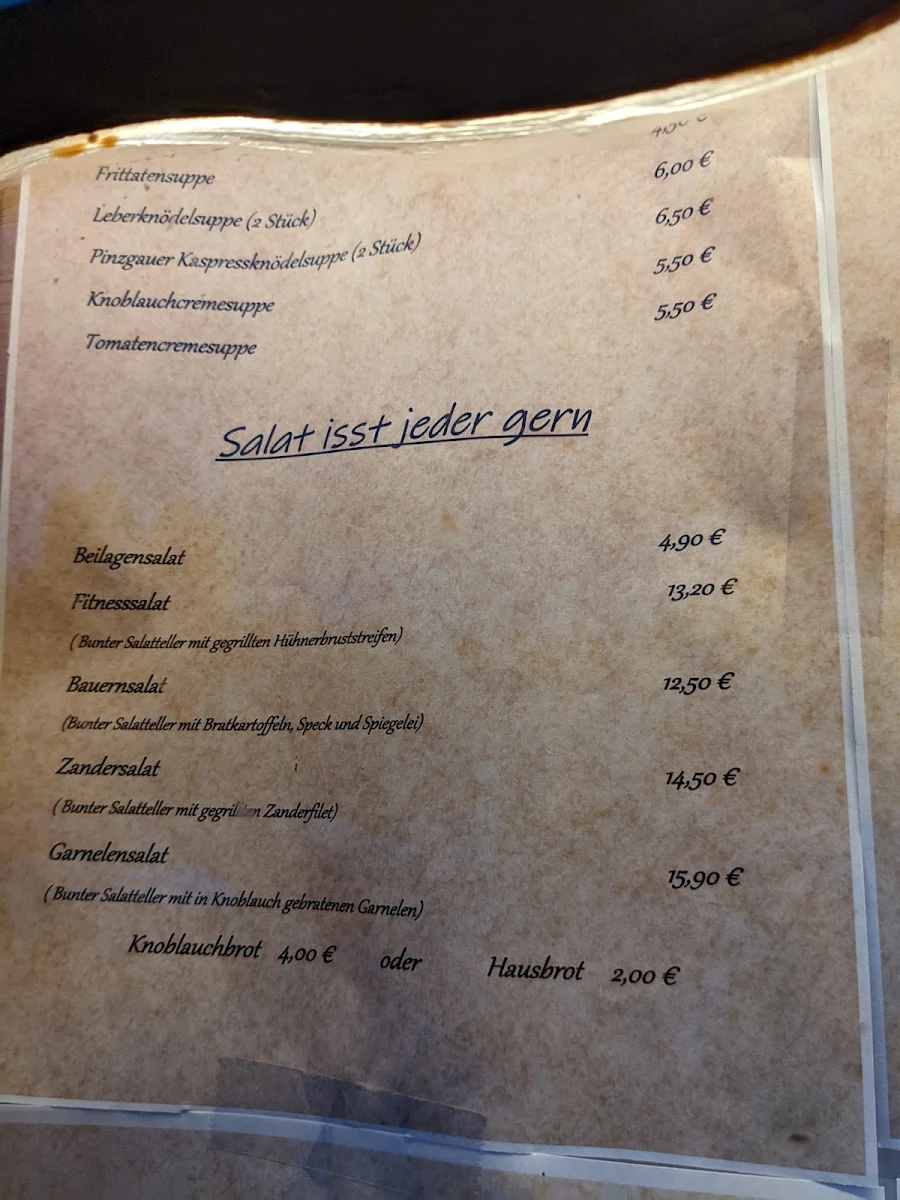 Frittatensuppe
Leberknödelsuppe (2 Stück) 6,00 €
Pinzgauer Kaspressknödelsuppe (2 Stück) 6,50 €
Knoblauchcremesuppe 5,50 €
Tomatencremesuppe 5,50 €
Salat isst jeder gern
Beilagensalat 4,90 €
Fitnesssalat 13,20 €
( Bunter Salatteller mit gegrillten Hühnerbruststreifen)
Bauernsalat 12,50 €
(Bunter Salatteller mit Bratkartoffeln, Speck und Spiegelei)
Zandersalat 14,50 €
( Bunter Salatteller mit gegrillten Zanderfilet)
Garnelensalat 15,90 €
( Bunter Salatteller mit in Knoblauch gebratenen Garnelen)
Knoblauchbrot 4,00 € oder Hausbrot 2,00 €